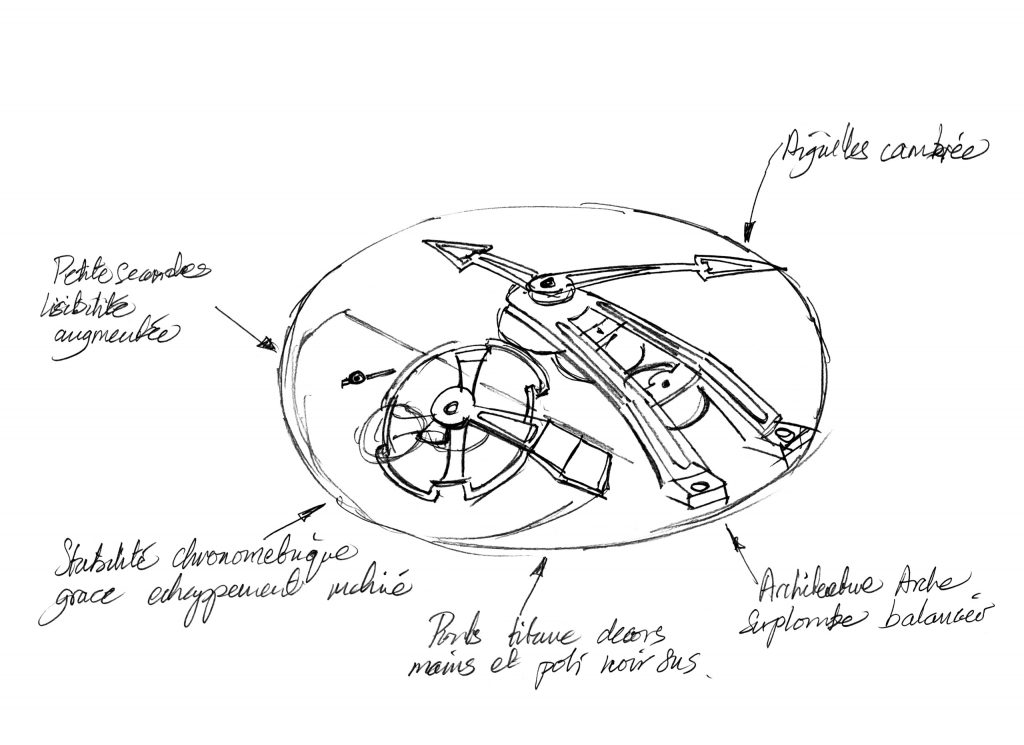 Aiguilles cambrée
Petite secondes
lisibilité
augmentée
Stabilité chronometrique
grace echappement incliné
Architecture Arche
Surplombe balancier
Ponts titane decors
mains et poli noir sus.